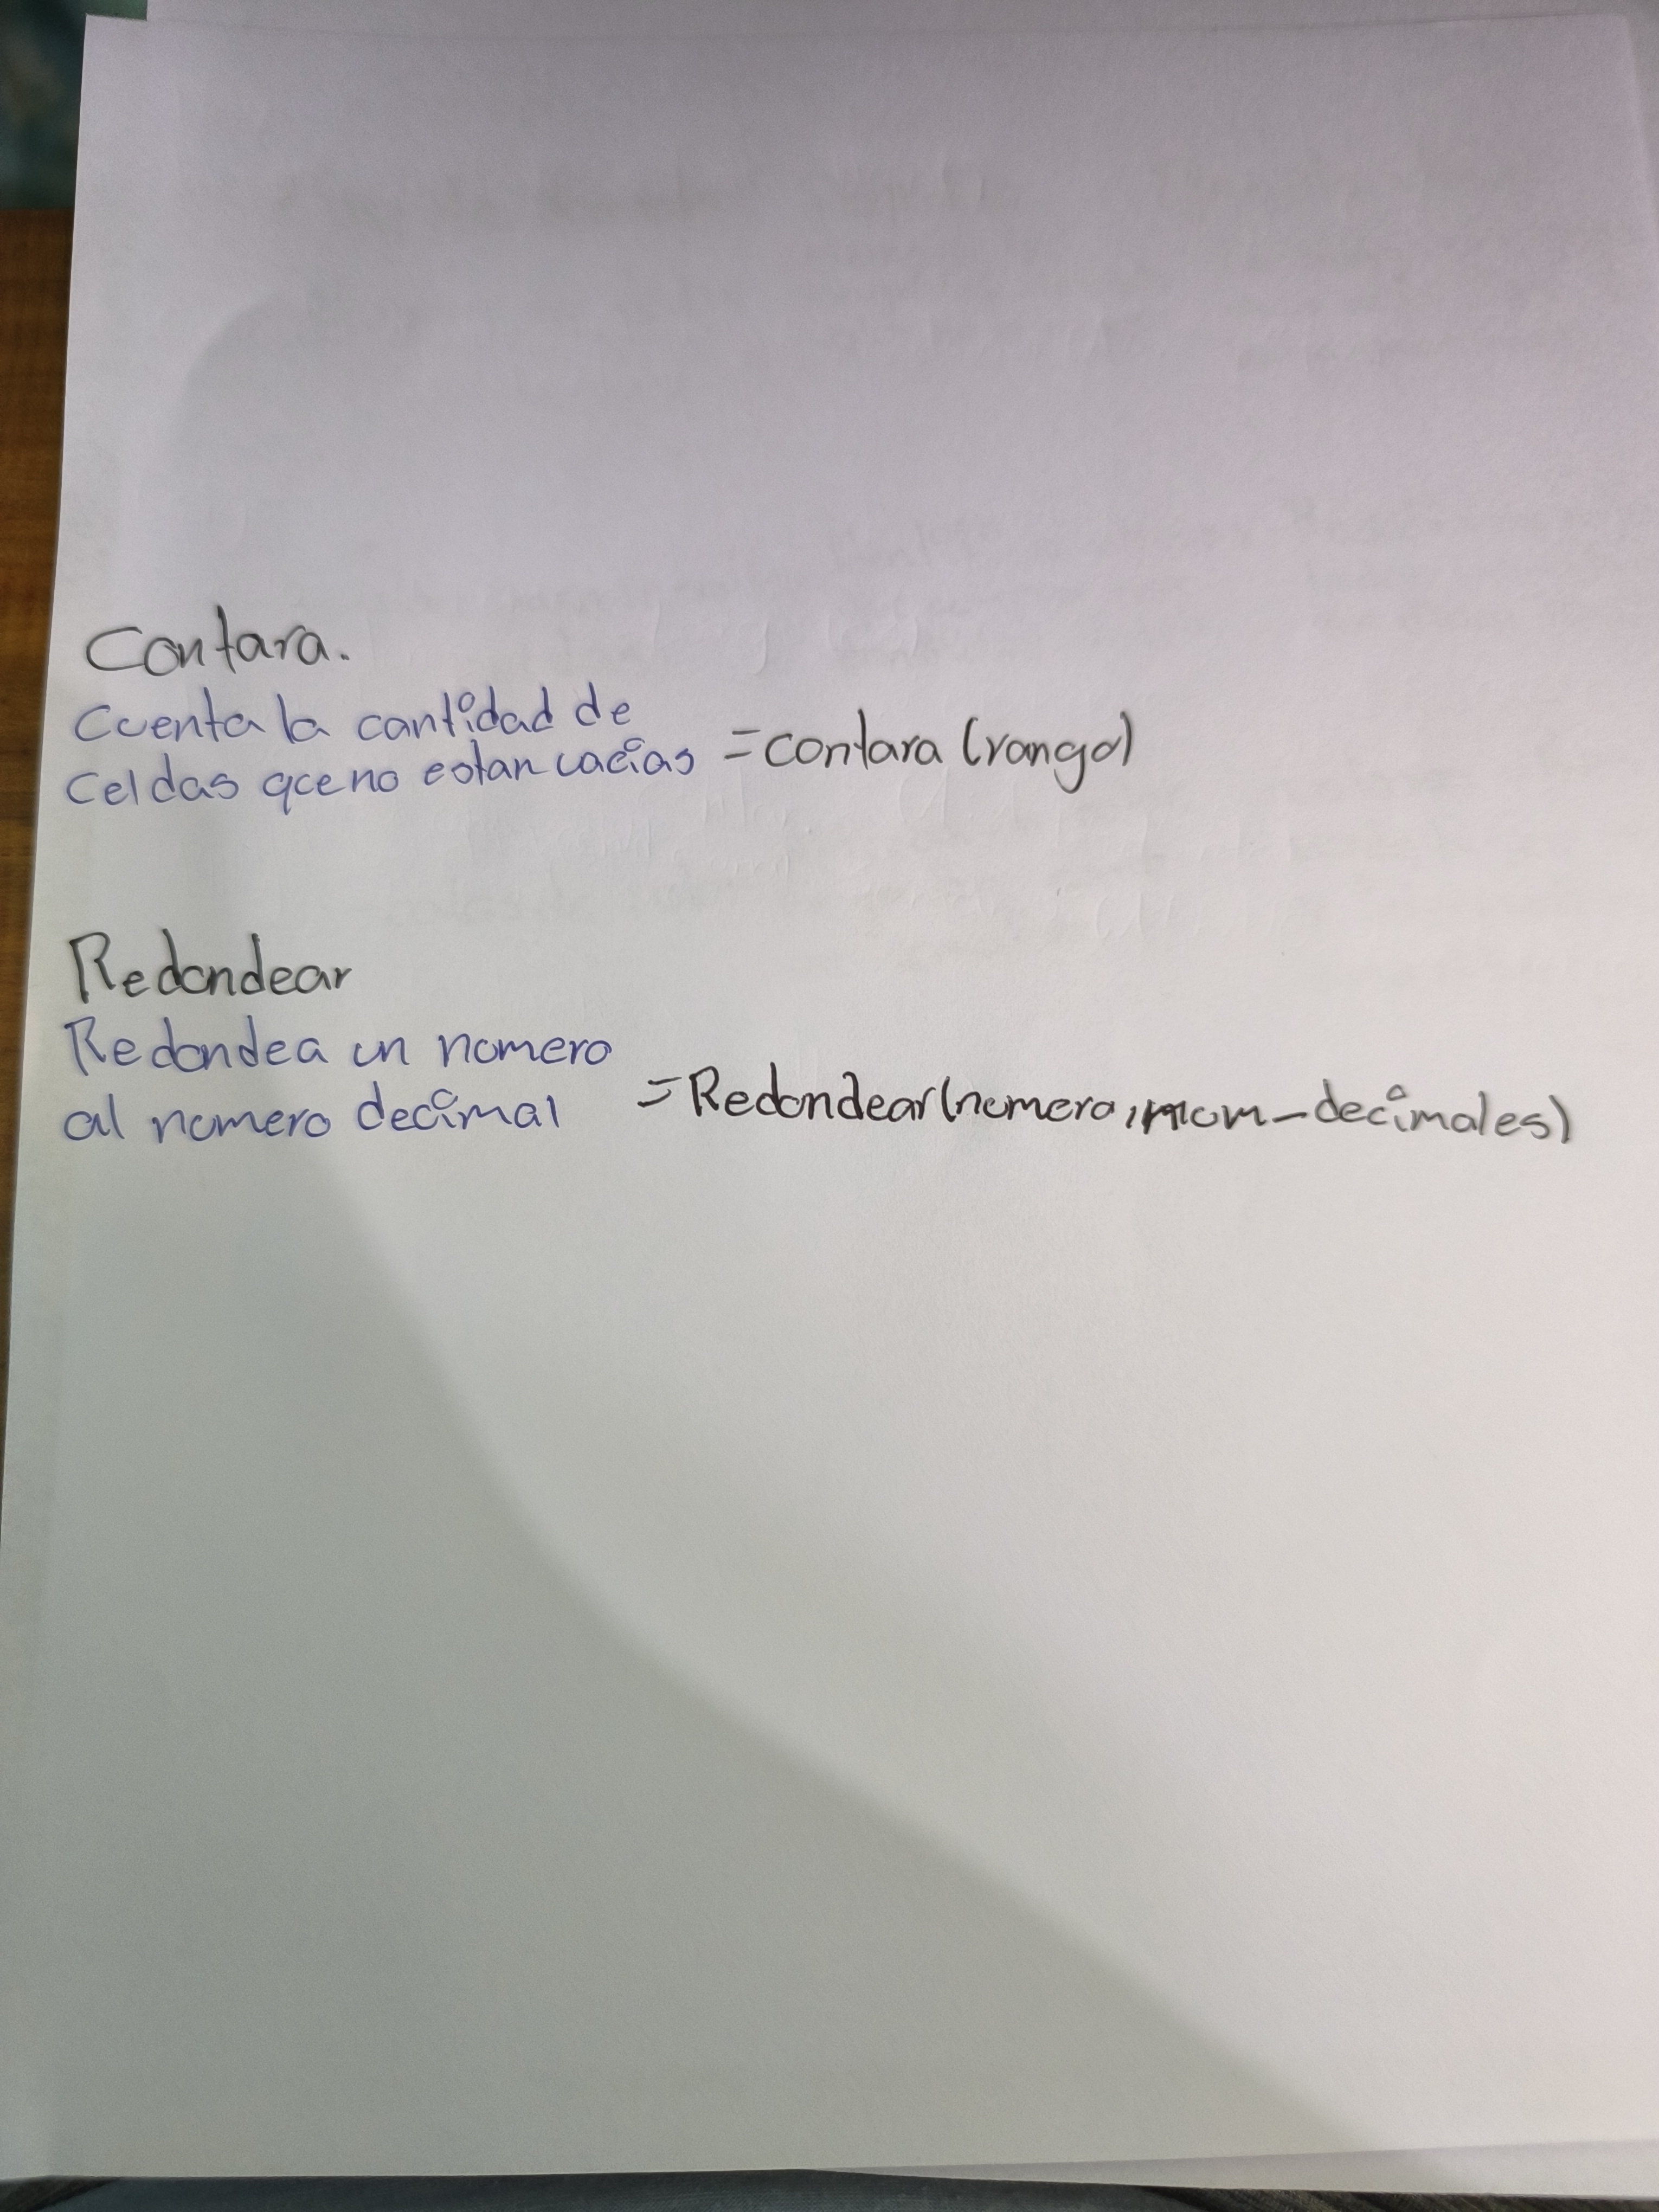 Contara.
Cuenta la cantidad de
celdas que no estan vacias = contara (rango)
Redondear
Redondea un numero
al numero decimal = Redondear(numero, num_decimales)